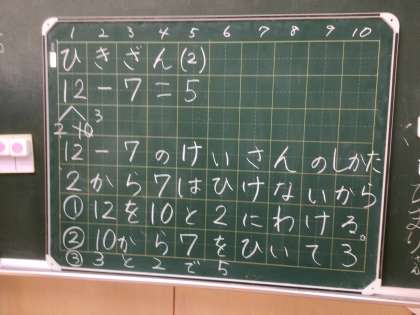 1 2 3 4 5 6 7 8 9 10
ひきざん(2)
12-7=5
3
2 10
12-7のけいさんのしかた
2から7はひけないから
①12を10と2にわける。
②10から7をひいて3
③3と2で5